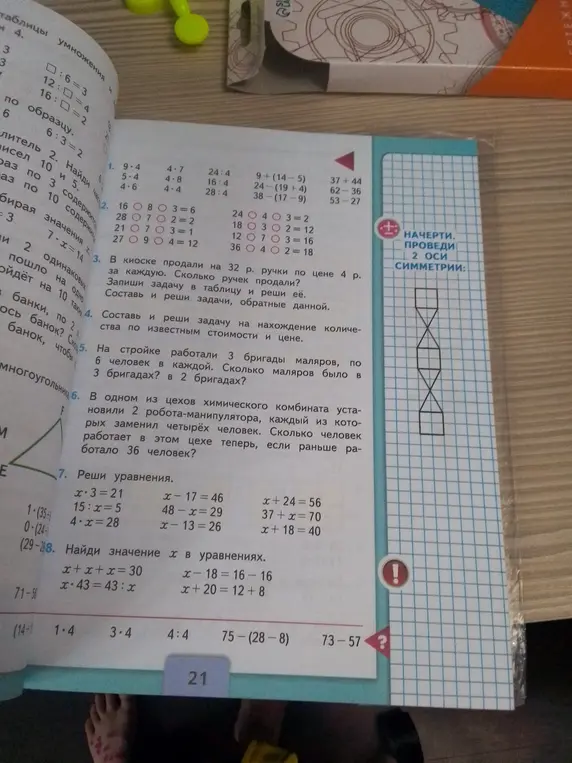 таблицы умножения
4.
3
□ : 6 = 3
12 : □ = 4
16 : □ = 2
по образцу.
6
6 : 3 = 2
2. Найди
10 и 5.
раз по 3
раз по 10
значения
= 3
7 · x = 14
2 одинаковых
пошло на
на 10
банки, по 2
банок?
банок, чтобы
М
Е
0 · (24
(29 −
(14 −
1.
9 · 4 4 · 7 24 : 4 9 + (14 − 5) 37 + 44
5 · 4 4 · 8 16 : 4 24 − (19 + 4) 62 − 36
4 · 6 4 · 4 28 : 4 38 − (17 − 9) 53 − 27
2.
16 ○ 8 ○ 3 = 6 24 ○ 4 ○ 3 = 2
28 ○ 7 ○ 2 = 2 18 ○ 3 ○ 2 = 12
21 ○ 7 ○ 3 = 1 12 ○ 7 ○ 3 = 16
27 ○ 9 ○ 4 = 12 36 ○ 4 ○ 2 = 18
3. В киоске продали на 32 р. ручки по цене 4 р.
за каждую. Сколько ручек продали?
Запиши задачу в таблицу и реши её.
Составь и реши задачи, обратные данной.
4. Составь и реши задачу на нахождение количе-
ства по известным стоимости и цене.
5. На стройке работали 3 бригады маляров, по
6 человек в каждой. Сколько маляров было в
3 бригадах? в 2 бригадах?
6. В одном из цехов химического комбината уста-
новили 2 робота-манипулятора, каждый из кото-
рых заменил четырёх человек. Сколько человек
работает в этом цехе теперь, если раньше ра-
ботало 36 человек?
7. Реши уравнения.
x · 3 = 21 x − 17 = 46 x + 24 = 56
15 : x = 5 48 − x = 29 37 + x = 70
4 · x = 28 x − 13 = 26 x + 18 = 40
8. Найди значение x в уравнениях.
x + x + x = 30 x − 18 = 16 − 16
x · 43 = 43 : x x + 20 = 12 + 8
1 · 4 3 · 4 4 : 4 75 − (28 − 8) 73 − 57
?
21
НАЧЕРТИ.
ПРОВЕДИ
2 ОСИ
СИММЕТРИИ:
!